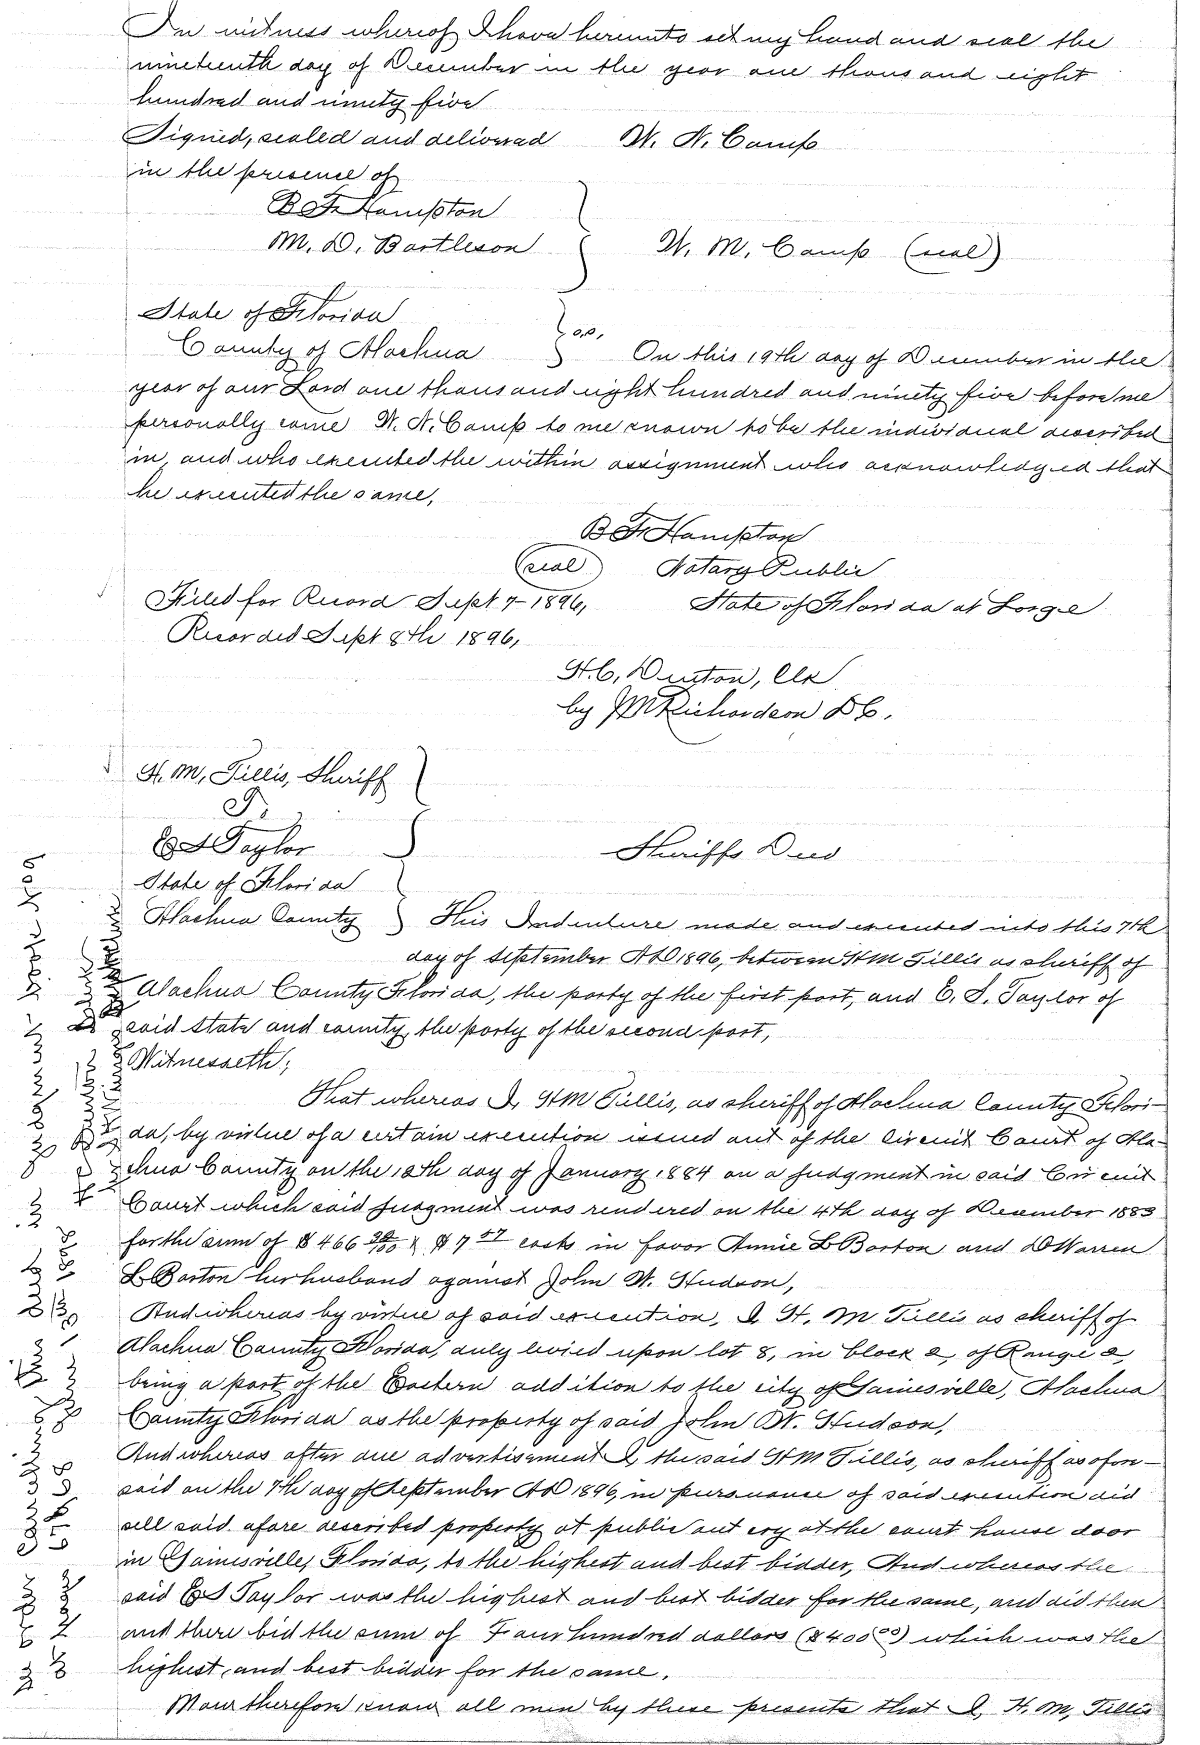 In witness whereof I have hereunto set my hand and seal the
nineteenth day of December in the year one thousand eight
hundred and ninety five
Signed, sealed and delivered W. N. Camp
in the presence of
B F Hampton
M. D. Bartleson } W. M. Camp (seal)
State of Florida
County of Alachua } s.s. On this 19th day of December in the
year of our Lord one thousand eight hundred and ninety five before me
personally came W. N. Camp to me known to be the individual described
in, and who executed the within assignment who acknowledged that
he executed the same,
B F Hampton
(seal) Notary Public
Filed for Record Sept 7 1896, State of Florida at Large
Recorded Sept 8th 1896,
H. C. Denton, Clk
by J M Richardson D C.
H. M. Tillis, Sheriff
T.
E S Taylor } Sheriffs Deed
State of Florida
Alachua County } This Indenture made and executed into this 7th
day of September A D 1896, between H M Tillis as sheriff of
Alachua County Florida, the party of the first part, and E. S. Taylor of
said state and county, the party of the second part,
Witnesseth;
That whereas I, H M Tillis, as sheriff of Alachua County Flori-
da, by virtue of a certain execution issued out of the Circuit Court of Ala-
chua County on the 12th day of January 1884 on a judgment in said Circuit
Court which said judgment was rendered on the 4th day of December 1883
for the sum of $466 & $7 costs in favor Annie L Barton and D Warren
L Barton her husband against John W. Hudson,
And whereas by virtue of said execution, I H. M Tillis as sheriff of
Alachua County Florida, duly levied upon lot 8, in block 2, of Range 2,
being a part of the Eastern addition to the city of Gainesville, Alachua
County Florida as the property of said John W. Hudson,
And whereas after due advertisement I, the said H M Tillis, as sheriff as afore-
said on the 7th day of September A D 1896, in pursuance of said execution did
sell said afore described property at public out cry at the court house door
in Gainesville, Florida, to the highest and best bidder, And whereas the
said E S Taylor was the highest and best bidder for the same, and did then
and there bid the sum of Four hundred dollars ($400 00) which was the
highest, and best bidder for the same.
Now therefore, know all men by these presents that I, H. M. Tillis